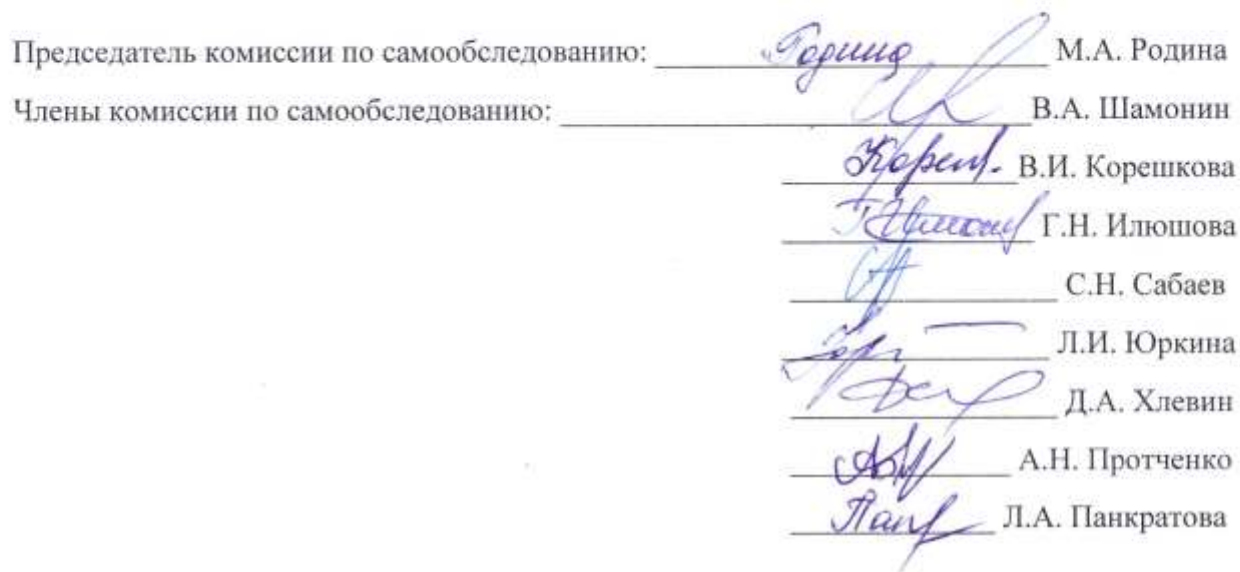 Председатель комиссии по самообследованию: Родина М.А. Родина
Члены комиссии по самообследованию: В.А. Шамонин
В.И. Корешкова
Г.Н. Илюшова
С.Н. Сабаев
Л.И. Юркина
Д.А. Хлевин
А.Н. Протченко
Л.А. Панкратова